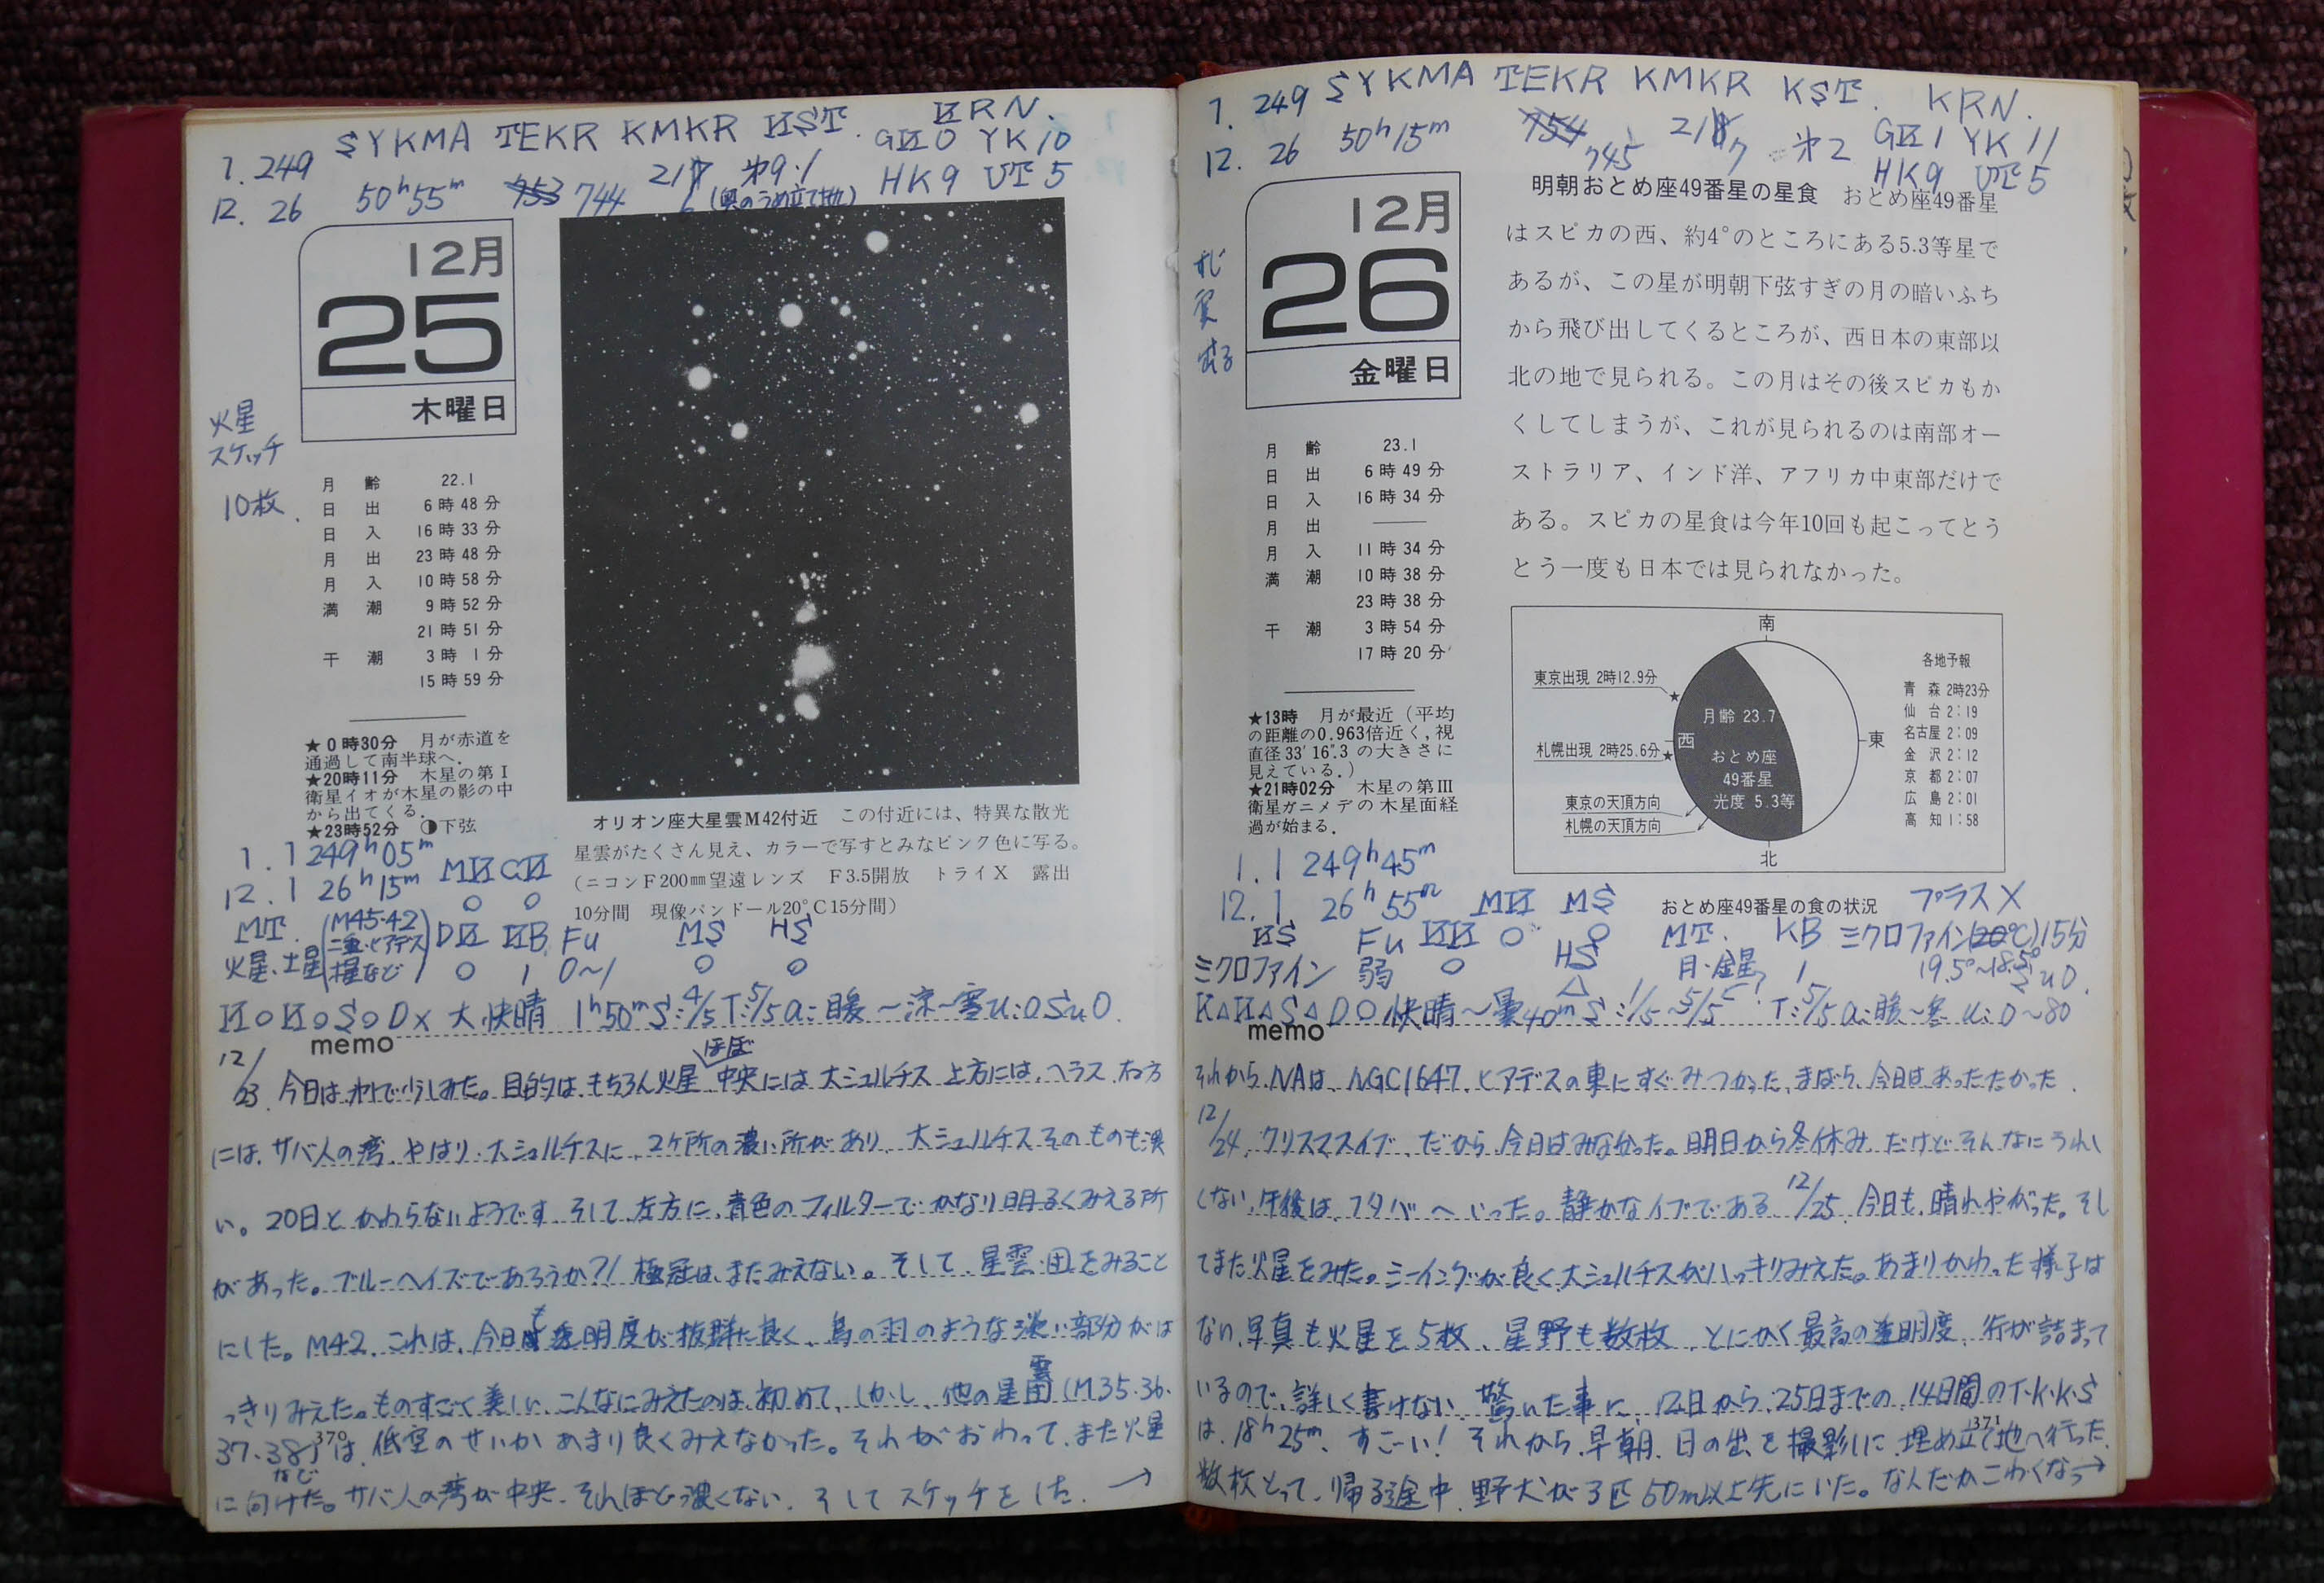 1. 249 SYKMA TEKR KMKR KST. KRN.
12. 26 50h55m 753 744 217 6 GK0 YK10
HK9 UT5
12月
25
木曜日
火星
スケッチ
10枚.
月齢 22.1
日出 6時48分
日入 16時33分
月出 23時48分
月入 10時58分
満潮 9時52分
21時51分
干潮 3時1分
15時59分
★0時30分 月が赤道を
通過して南半球へ.
★20時11分 木星の第I
衛星イオが木星の影の中
から出てくる.
★23時52分 ◑下弦
オリオン座大星雲M42付近 この付近には、特異な散光
星雲がたくさん見え、カラーで写すとみなピンク色に写る。
(ニコンF200㎜望遠レンズ F3.5開放 トライX 露出
10分間 現像パンドール20°C15分間)
1.1 249h05m
12.1 26h15m MK GK
MT. (M45・42 DK KB Fu MS HS
火星、土星 など) 0 1 0~1 0 0
K○K○S○D× 大快晴 1h50m S:4/5 T:5/5 a:暖~涼~寒 u:0 Su0.
memo
12/23. 今日は、外で少しみた。目的は、もちろん火星、ほぼ中央には、大シュルチス、上方には、ヘラス、右方
には、サバ人の湾、やはり、大シュルチスに、2ケ所の濃い所があり、大シュルチスそのものも濃
い。20日とかわらないようです。そして、左方に、青色のフィルターでかなり明るくみえる所
があった。ブルーヘイズであろうか?! 極冠は、まだみえない。そして、星雲・団をみること
にした。M42、これは、今日も透明度が抜群に良く、鳥の羽のような淡い部分がは
っきりみえた。ものすごく美しい、こんなにみえたのは、初めて、しかし、他の星雲団(M35・36・
37・38)などは、低空のせいかあまり良くみえなかった。それがおわって、また火星
370
に向けた。サバ人の湾が中央、それほど濃くない、そしてスケッチをした. →
1. 249 SYKMA TEKR KMKR KST. KRN.
12. 26 50h15m 754 745 218 7 GK1 YK11
HK9 UT5
12月
26
金曜日
月齢 23.1
日出 6時49分
日入 16時34分
月出 ――
月入 11時34分
満潮 10時38分
23時38分
干潮 3時54分
17時20分
★13時 月が最近(平均
の距離の0.963倍近く,視
直径33′16″.3の大きさに
見えている.)
★21時02分 木星の第III
衛星ガニメデの木星面経
過が始まる.
明朝おとめ座49番星の星食 おとめ座49番星
はスピカの西、約4°のところにある5.3等星で
あるが、この星が明朝下弦すぎの月の暗いふち
から飛び出してくるところが、西日本の東部以
北の地で見られる。この月はその後スピカもか
くしてしまうが、これが見られるのは南部オー
ストラリア、インド洋、アフリカ中東部だけで
ある。スピカの星食は今年10回も起こってとう
とう一度も日本では見られなかった。
南
東京出現 2時12.9分
札幌出現 2時25.6分
東京の天頂方向
札幌の天頂方向
月齢 23.7
おとめ座
49番星
光度 5.3等
西
東
北
各地予報
青森 2時23分
仙台 2:19
名古屋 2:09
金沢 2:12
京都 2:07
広島 2:01
高知 1:58
おとめ座49番星の食の状況
1.1 249h45m
12.1 26h55m MK MS プラスX
KS Fu KK HS MT. KB ミクロファイン(20℃)15分
ミクロファイン 弱 月・金星 1 19.5°~18.5° Su0.
K△K△S△D○ 快晴~曇 40m S:1/5~5/5 T:5/5 a:暖~寒 u:0~80
memo
それからNAは、NGC1647、ヒアデスの東にすぐみつかった、まばら、今日はあったかかった.
12/24. クリスマスイブ、だから今日はみなかった。明日から冬休み、だけどそんなにうれし
くない、午後は、フタバへいった。静かなイブである 12/25. 今日も、晴れやがった。そし
てまた火星をみた。シーイングが良く、大シュルチスがハッキリみえた。あまりかわった様子は
ない、写真も火星を5枚、星野も数枚、とにかく最高の透明度、行が詰まって
いるので、詳しく書けない、驚いた事に、12日から、25日までの、14日間のT・K・K・S
は、18h25m、すごーい! それから、早朝、日の出を撮影しに、埋め立て地へ行った.
371
数枚とって、帰る途中、野犬が3匹50m以上先にいた。なんだかこわくなっ→